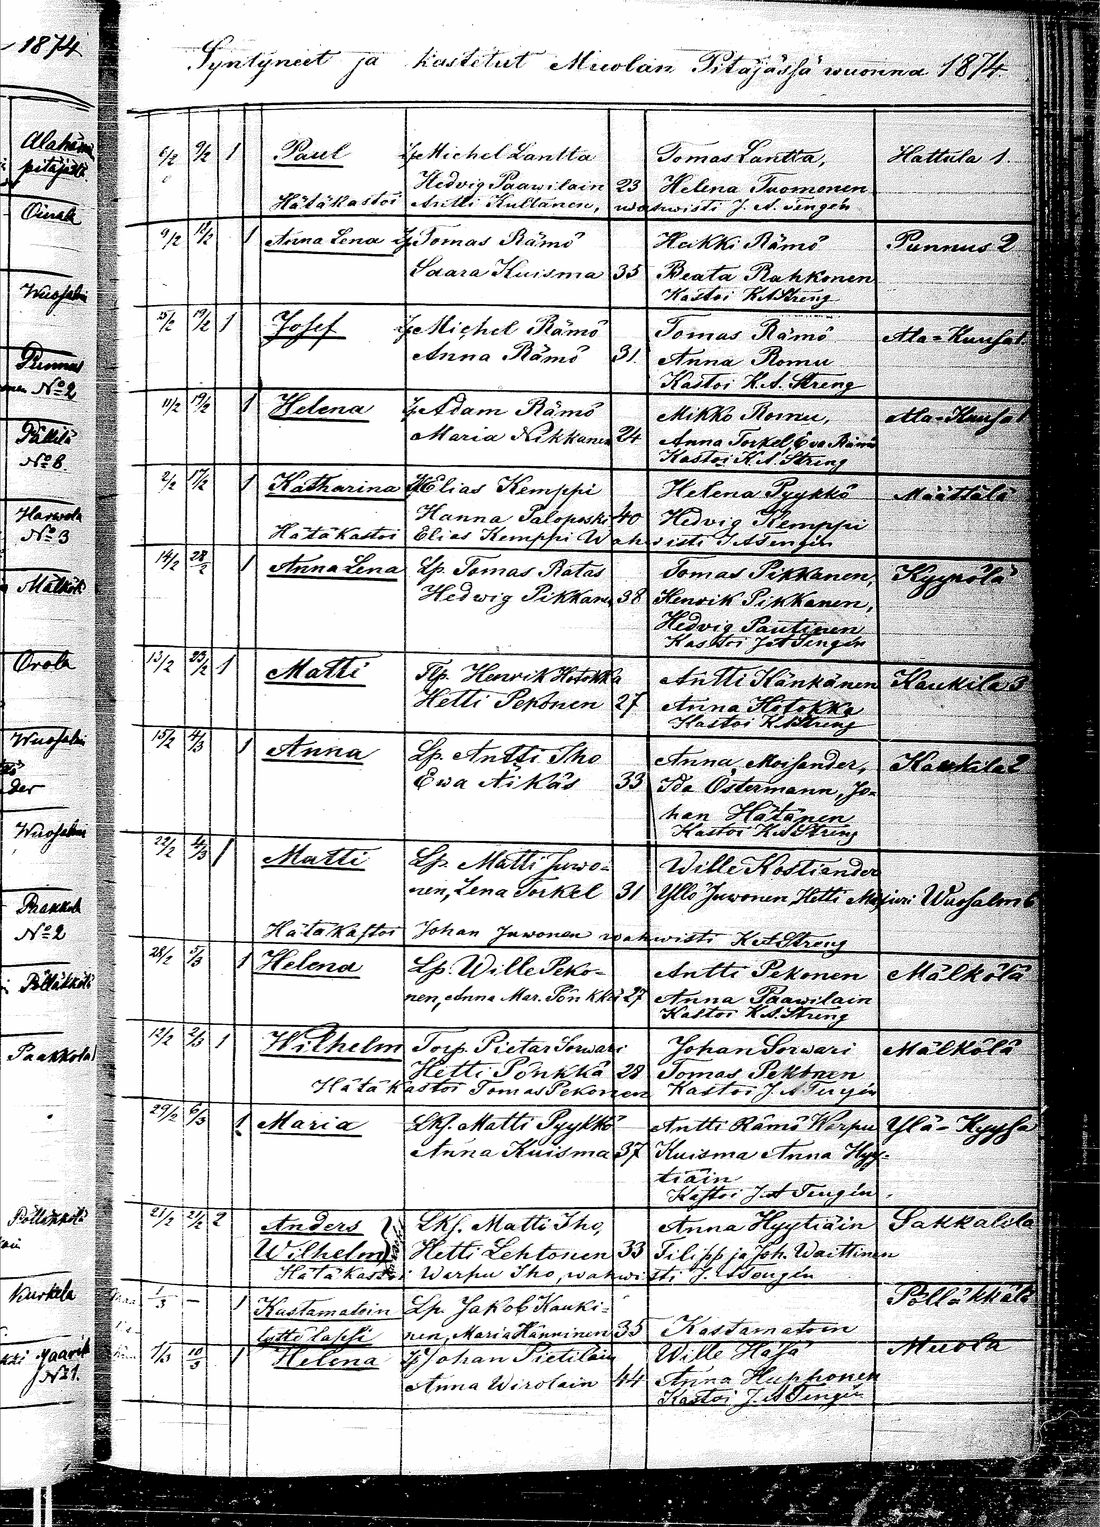 1874
Alahäme
pitäjästä.
Oinala
Wuosalmi
Punnus
No 2
Pällilä
No 6.
Harwola
No 3
Mälkölä
Orola
Wuosalmi
Wuosalmi
Paakkola
No 2
Pölläkkälä
Paakkola
Pölläkkälä
Kurkela
No 1.
Syntyneet ja kastetut Muolan Pitäjässä wuonna 1874
6/2 9/2 1 Paul Lp Michel Lantta Tomas Lantta, Hattula 1.
Hedvig Paawilain 23 Helena Tuomonen
Hätäkastoi Antti Kultanen, wahwisti J. A. Tengén
9/2 12/2 1 Anna Lena Lp Tomas Rämö Heikki Rämö Punnus 2
Saara Kuisma 35 Beata Rahkonen
Kastoi K.A. Streng
15/2 19/2 1 Josef Lp Michel Rämö Tomas Rämö Ala-Kuusa 1.
Anna Rämö 31. Anna Romu
Kastoi K.A. Streng
11/2 19/2 1 Helena Lp Adam Rämö Mikko Romu, Ala-Kuusa 1
Maria Nikkanen 24 Anna Torkel, Eva Rämö
Kastoi K.A. Streng
2/2 17/2 1 Katharina Lp Elias Kemppi Helena Pyykkö Määttälä
Hanna Paloposki 40 Hedvig Kemppi
Hätäkastoi Elias Kemppi Wahwisti J A Tengén
14/2 28/2 1 Anna Lena Lp. Tomas Ratas Tomas Pikkanen, Kyyrölä
Hedwig Pikkanen 38 Henrik Pikkanen,
Hedvig Pautinen
Kastoi J A Tengén
13/2 23/2 1 Matti Tlp. Henrik Hotokka Antti Känkänen Kaukila 3
Hetti Pekonen 27 Anna Hotokka
Kastoi K.A. Streng
15/2 4/3 1 Anna Lp. Antti Iho Anna Moisander, Kaukila 2
Ewa Äikäs 33 Ida Östermann, Jo-
han Hätönen
Kastoi K.A. Streng
22/2 4/3 1 Matti Lp. Matti Juwo- Wille Kostiander
nen, Lena Torkel 31 Yllö Juwonen, Hetti Wuosalmi 6
Hätäkastoi Johan Juwonen wahwisti K.A. Streng
28/2 5/3 1 Helena Lp. Wille Peko- Antti Pekonen Mälkölä
nen, Anna Mar. Pönkkä 27 Anna Paawilain
Kastoi K.A. Streng
12/2 2/3 1 Wilhelm Torp. Pietar Sorwari Johan Sorwari Mälkölä
Hetti Pönkkä 28 Tomas Pekonen
Hätäkastoi Tomas Pekonen Kastoi J. A Tengén
29/2 6/3 1 Maria Lkf. Matti Pyykkö Antti Rämö Warpu Ylä-Kyysä
Anna Kuisma 37 Kuisma Anna Hyy-
tiäin
Kastoi J. A Tengén.
21/2 21/2 2 Anders Lkf. Matti Iho, Anna Hyytiäin Sakkalila
Wilhelm Hetti Lehtonen 33 Filipp ja Joh. Waittinen
Hätäkastoi Warpu Iho, wahwisti J. A Tengén
1/3 - 1 Kastamatoin Lp. Jakob Kauki- Pölläkkälä
tyttö lapsi nen, Maria Hänninen 35 Kastamatoin
7/3 10/3 1 Helena Lp Johan Pietiläin Wille Häsä Muola
Anna Wirolain 44 Anna Hupponen
Kastoi J. A Tengén